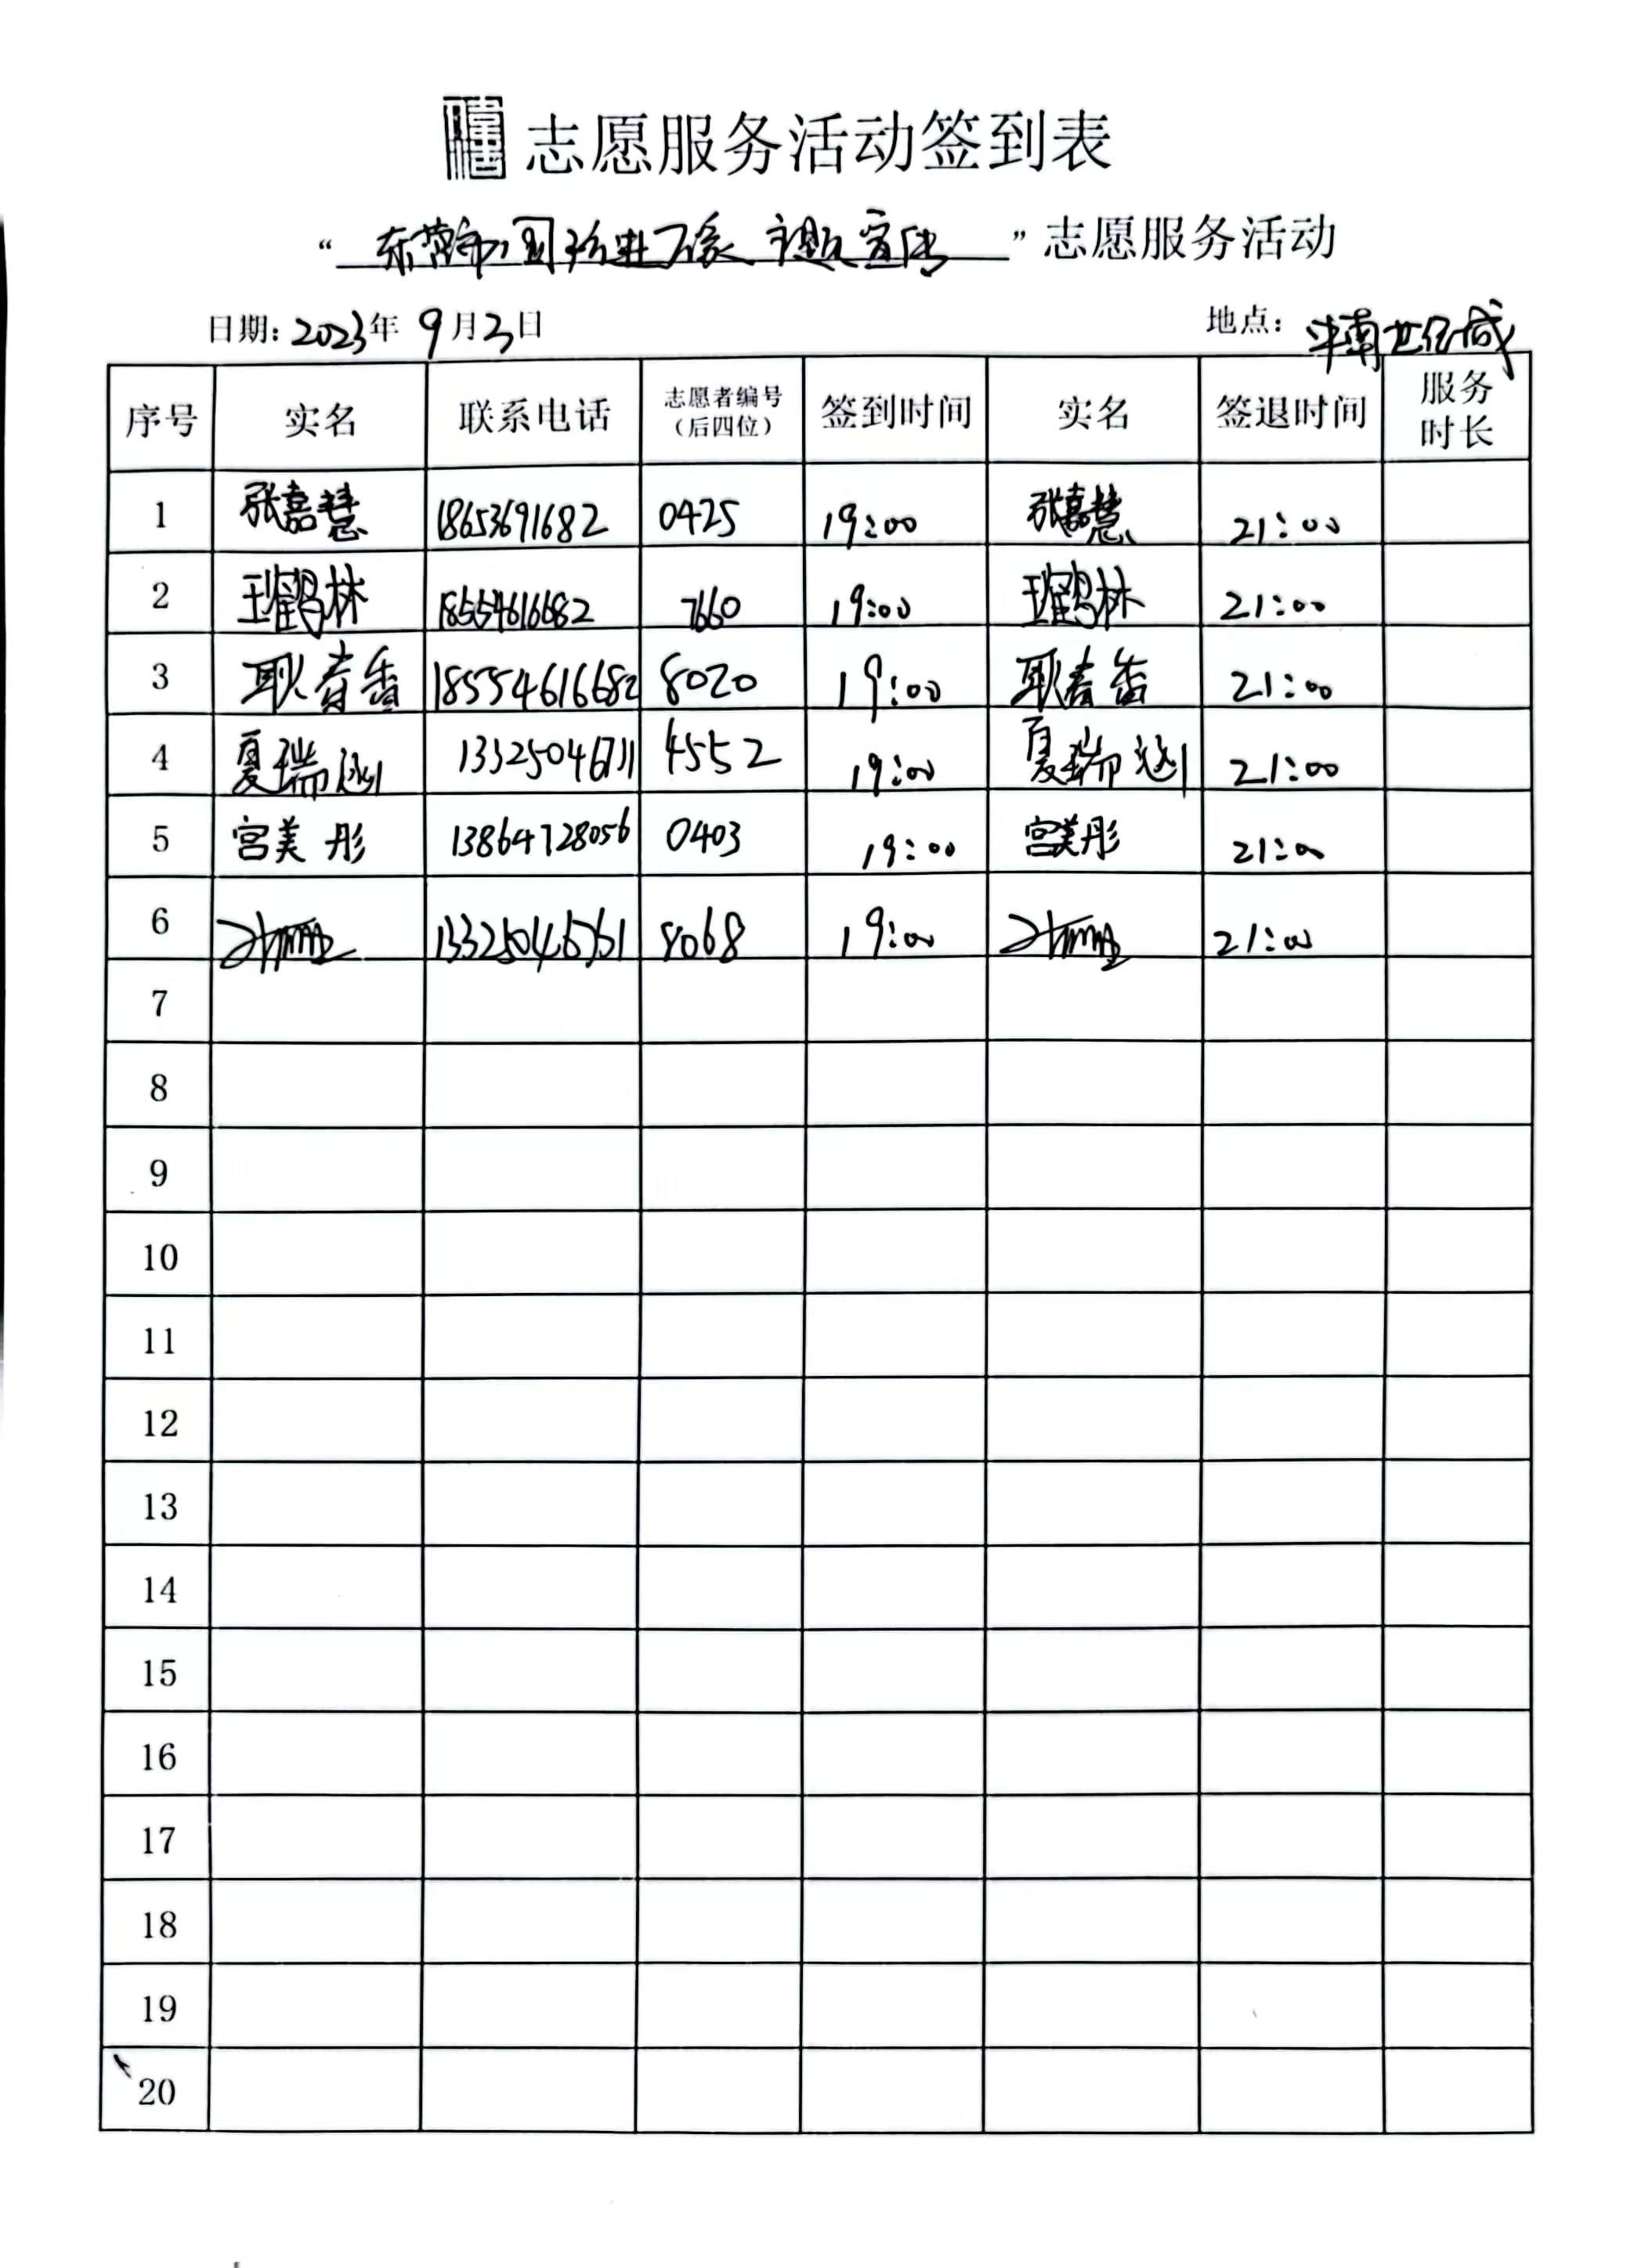 志愿服务活动签到表
“东营市、国珍进万家 主题宣传”志愿服务活动
日期：2023年 9月3日 地点：世纪城
序号 实名 联系电话 志愿者编号（后四位） 签到时间 实名 签退时间 服务时长
1 张嘉慧 18653691682 0425 19:00 张嘉慧 21:00
2 王鹤林 18554616682 7660 19:00 王鹤林 21:00
3 耿春香 18554616682 8020 19:00 耿春香 21:00
4 夏瑞涵 4552 19:00 夏瑞涵 21:00
5 宫美彤 13864728056 0403 19:00 宫美彤 21:00
6 8068 19:00 21:00
7
8
9
10
11
12
13
14
15
16
17
18
19
20